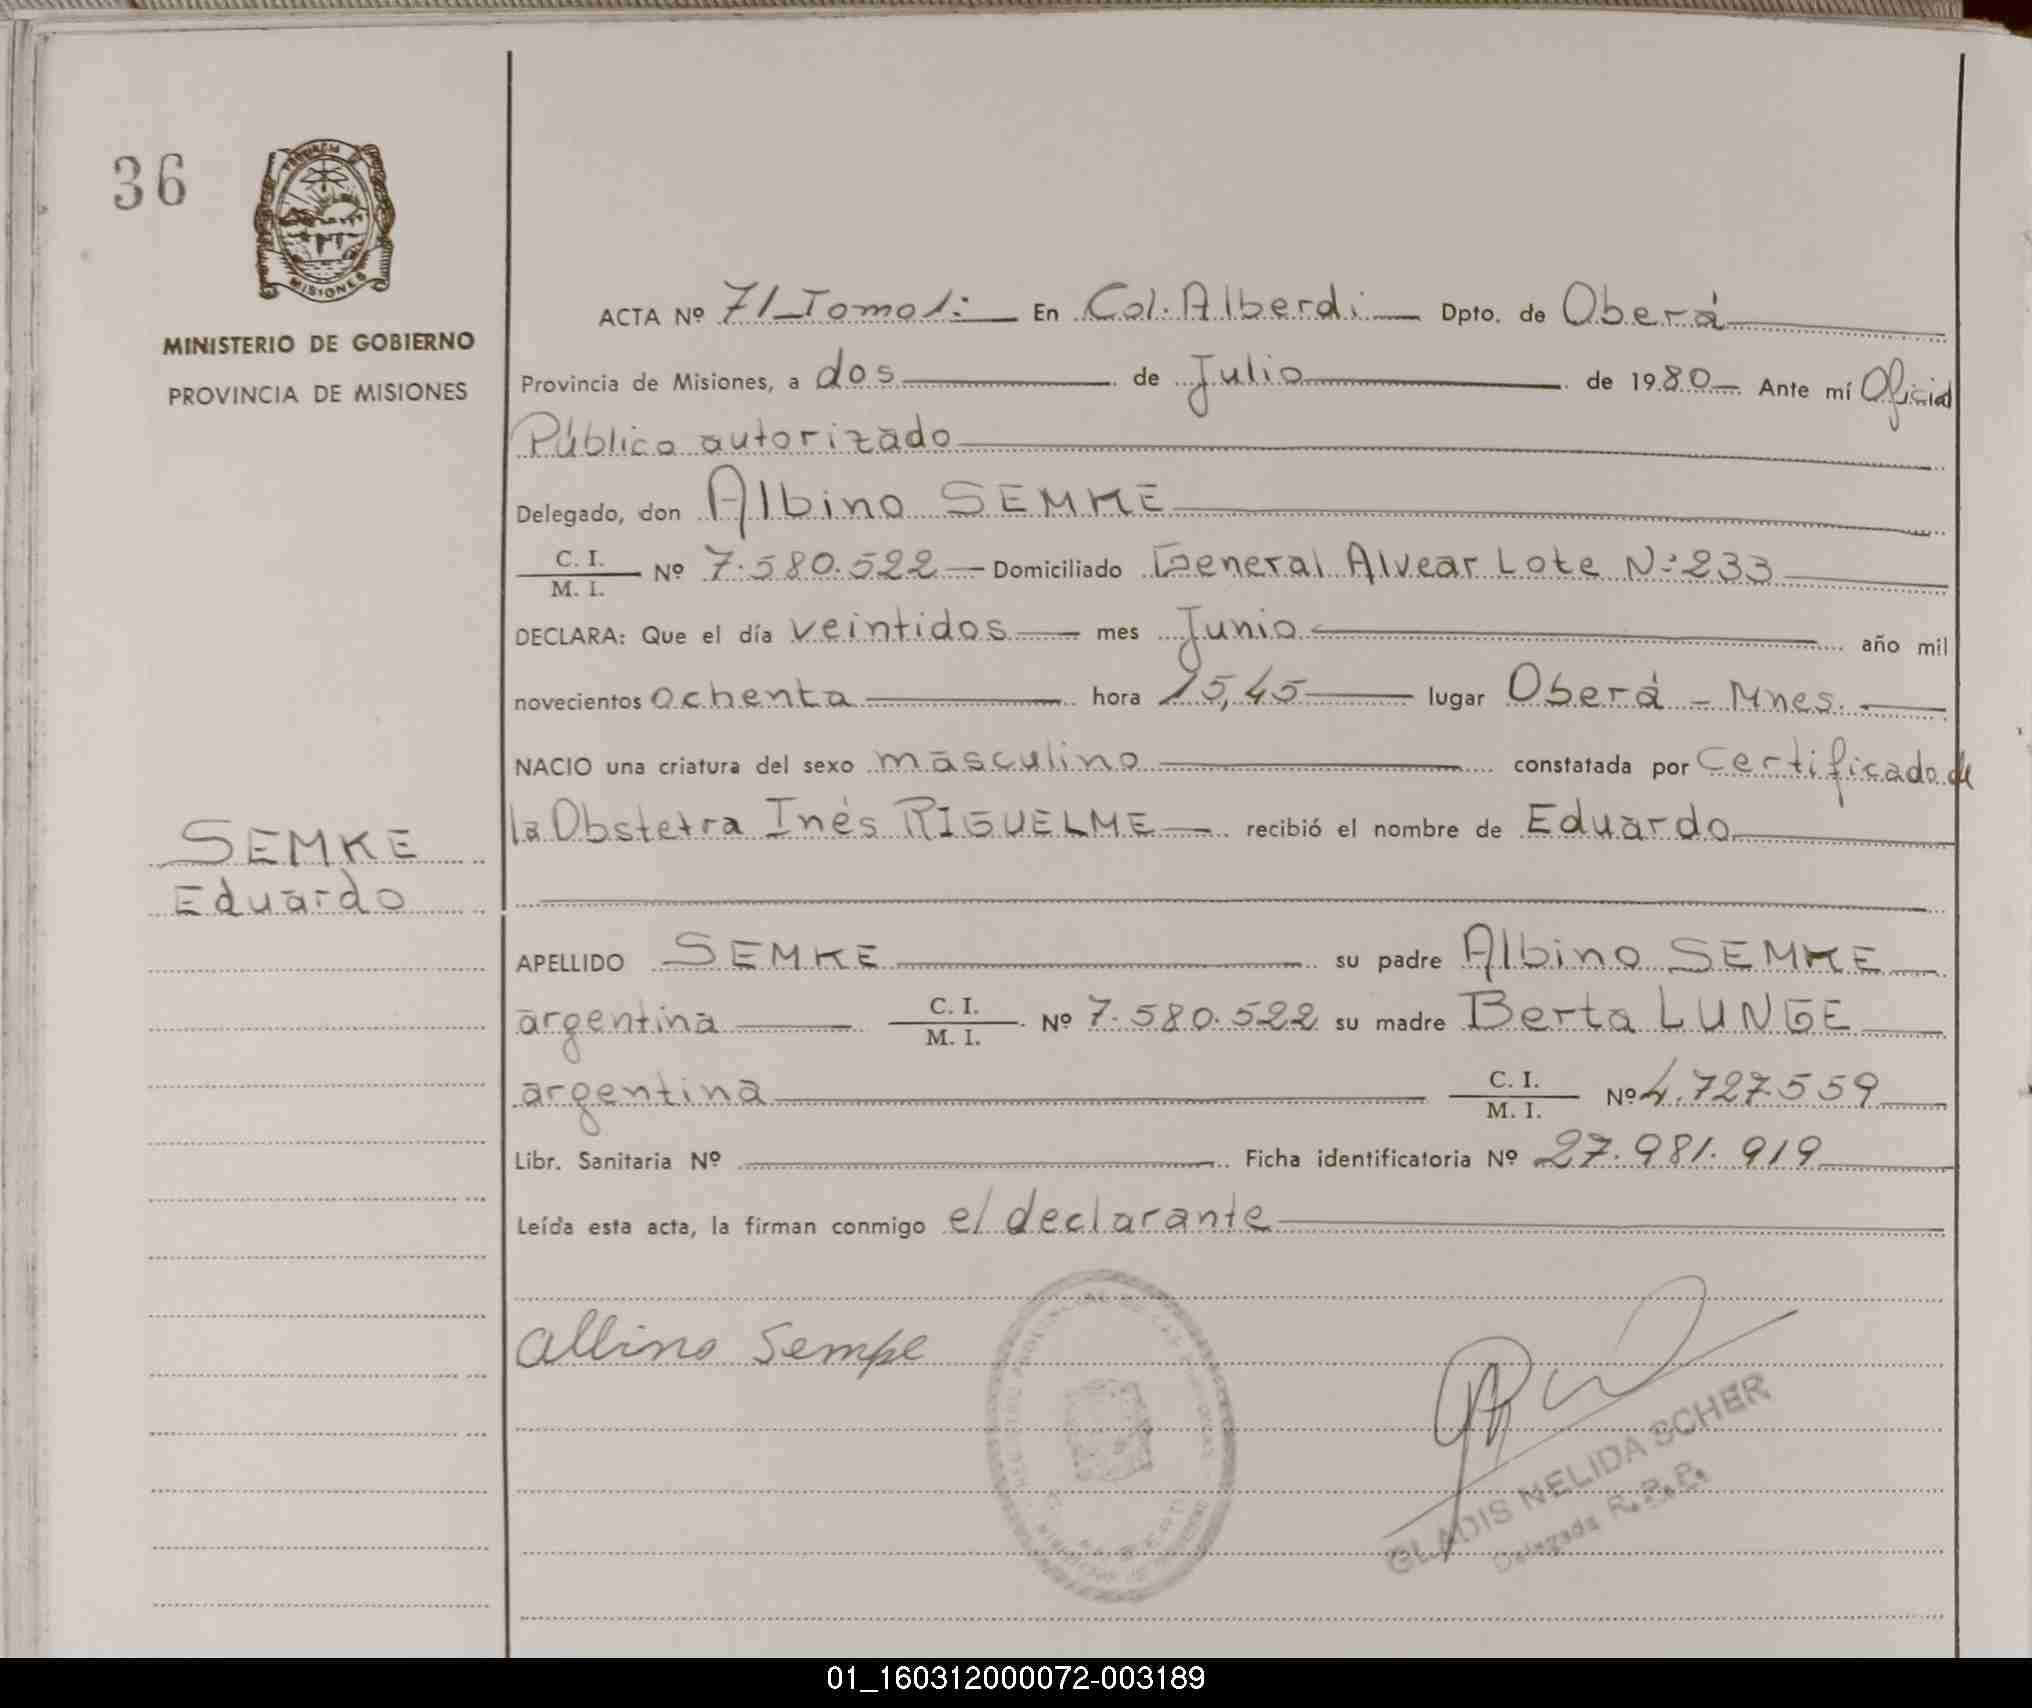 36
MINISTERIO DE GOBIERNO
PROVINCIA DE MISIONES
PROVINCIA
MISIONES
ACTA Nº 71 Tomo 1: En Col. Alberdi Dpto. de Oberá
Provincia de Misiones, a dos de Julio de 1980 Ante mí Oficial
Público autorizado
Delegado, don Albino SEMKE
C. I. / M. I. Nº 7.580.522 Domiciliado General Alvear Lote Nº 233
DECLARA: Que el día veintidos mes Junio año mil
novecientos ochenta hora 15,45 lugar Oberá - Mnes.
NACIO una criatura del sexo masculino constatada por Certificado de
la Obstetra Inés RIGUELME recibió el nombre de Eduardo
SEMKE
Eduardo
APELLIDO SEMKE su padre Albino SEMKE
argentina C. I. / M. I. Nº 7.580.522 su madre Berta LUNGE
argentina C. I. / M. I. Nº 4.727.559
Libr. Sanitaria Nº Ficha identificatoria Nº 27.981.919
Leída esta acta, la firman conmigo el declarante
Albino Semke
GLADIS NELIDA SCHER
Delegada R. P. P.
01_160312000072-003189